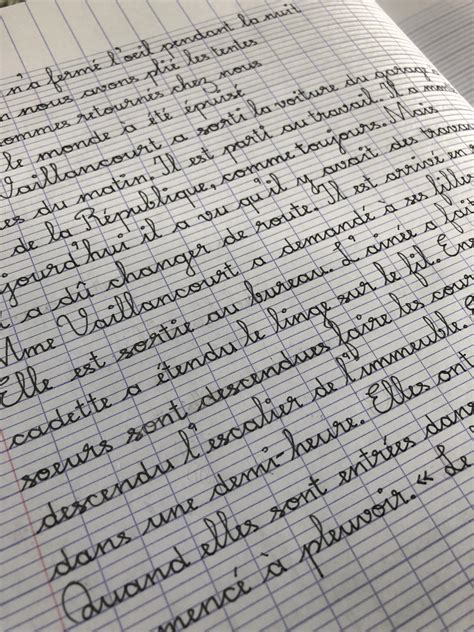 n'a fermé l'oeil pendant la nuit
nous avons plié les tentes
sommes retournés chez nous
le monde a été épuisé
Vaillancourt a sorti la voiture du garage
es du matin. Il est parti au travail. Il a
de la République, comme toujours. Mais
jourd'hui il a vu qu'il y avait des travau
a dû changer de route. Il est arrivé en
Mme Vaillancourt a demandé à ses filles
Elle est sortie au bureau. L'ainée a fait
cadette a étendu le linge sur le fil. En
soeurs sont descendues faire les cou
descendu l'escalier de l'immeuble
dans une demi-heure. Elles ont
Quand elles sont entrées dans
mencé à pleuvoir. « Le